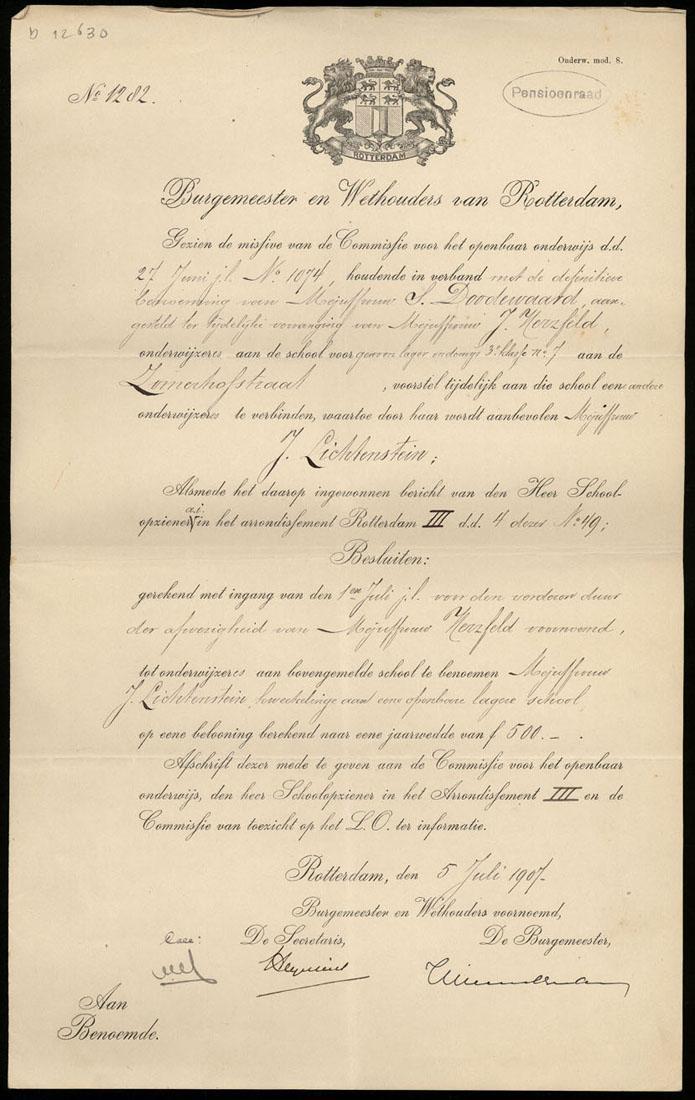 D 12630
Onderw. mod. 8.
No. 1282.
Pensioenraad
ROTTERDAM
Burgemeester en Wethouders van Rotterdam,
Gezien de missive van de Commissie voor het openbaar onderwijs d.d.
27 Juni j.l. No. 1074, houdende in verband met de definitieve
benoeming van Mejuffrouw S. Doodewaard, aan-
gesteld ter tijdelijke vervanging van Mejuffrouw J. Herzfeld,
onderwijzeres aan de school voor gewoon lager onderwijs 3e klasse no. 7 aan de
Zomerhofstraat, voorstel tijdelijk aan die school een andere
onderwijzeres te verbinden, waartoe door haar wordt aanbevolen Mejuffrouw
J. Lichtenstein;
Alsmede het daarop ingewonnen bericht van den Heer School-
a.i.
opziener in het arrondissement Rotterdam III d.d. 4 dezer No. 49;
Besluiten:
gerekend met ingang van den 1en Juli j.l. voor den verderen duur
der afwezigheid van Mejuffrouw Herzfeld voornoemd,
tot onderwijzeres aan bovengemelde school te benoemen Mejuffrouw
J. Lichtenstein, kweekelinge aan eene openbare lagere school,
op eene belooning berekend naar eene jaarwedde van f 500.– .
Afschrift dezer mede te geven aan de Commissie voor het openbaar
onderwijs, den heer Schoolopziener in het Arrondissement III en de
Commissie van toezicht op het L.O. ter informatie.
Rotterdam, den 5 Juli 1907.
Burgemeester en Wethouders voornoemd,
De Secretaris, De Burgemeester,
Aan
Benoemde.